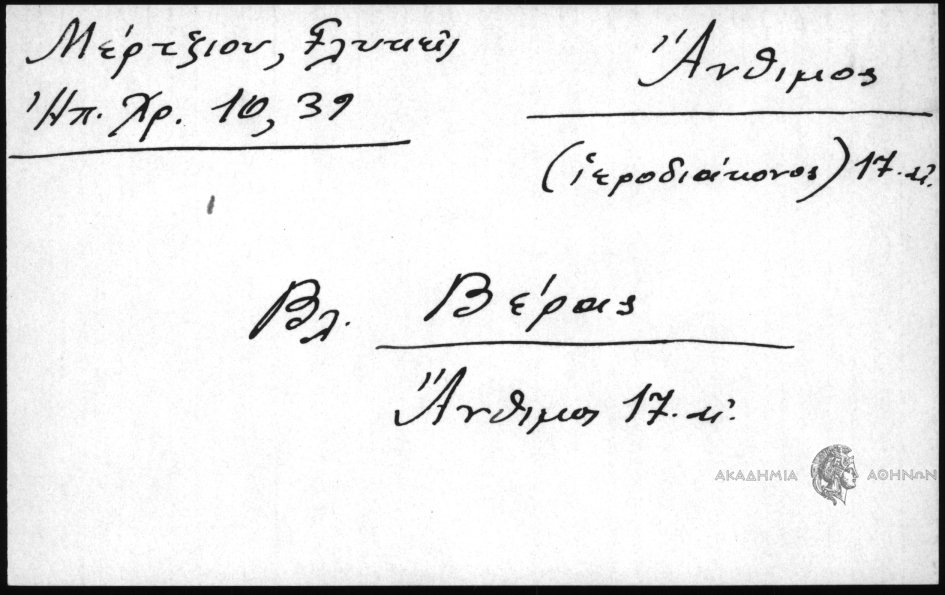 Μέρτζιου, Γλυκεῖς
Ἠπ. Χρ. 10, 39
Ἄνθιμος
(ἱεροδιάκονος) 17. αἰ.
Βλ. Βέρας
Ἄνθιμος 17. αἰ.
ΑΚΑΔΗΜΙΑ ΑΘΗΝΩΝ